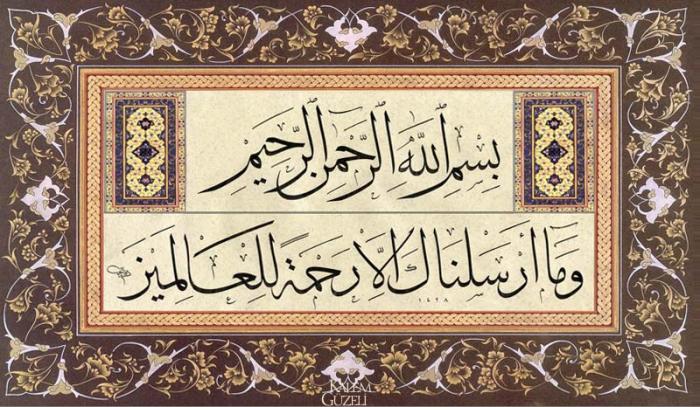 بِسْمِ اللهِ الرَّحْمٰنِ الرَّحِيمِ
وَمَا أَرْسَلْنَاكَ اِلَّا رَحْمَةً لِلْعَالَمِينَ
١٤٢٨
KALEM
GÜZELİ